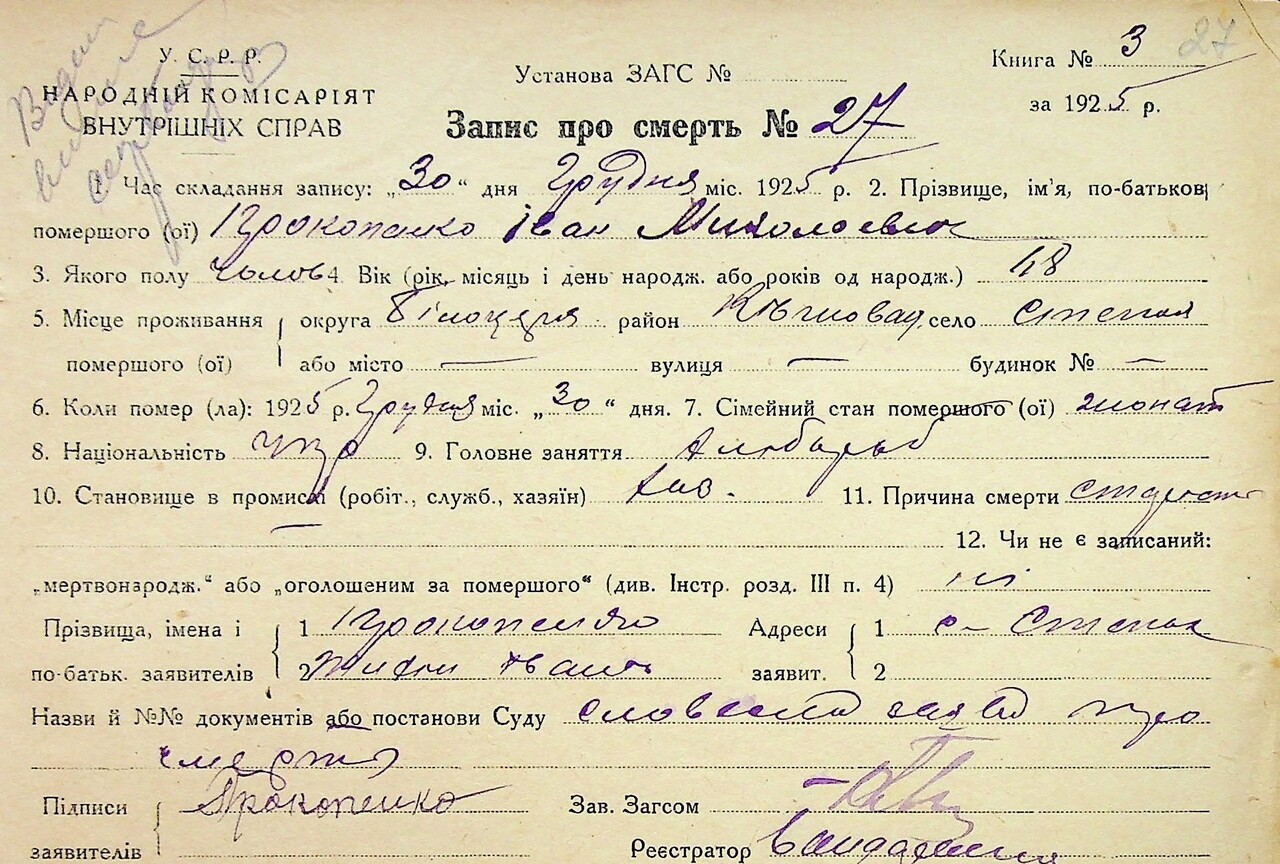 У. С. Р. Р.
НАРОДНІЙ КОМІСАРІЯТ
ВНУТРІШНІХ СПРАВ
Установа ЗАГС №
Книга № 3 27
за 1925 р.
Запис про смерть № 27
1. Час складання запису: „30“ дня Грудня міс. 1925 р. 2. Прізвище, ім'я, по-батькові
помершого (ої) Прокопенко Іван Миколаевич
3. Якого полу чолов 4. Вік (рік, місяць і день народж. або років од народж.)
5. Місце проживання помершого (ої) округа Білоцерк район село Степок
або місто — вулиця — будинок № —
6. Коли помер (ла): 1925 р. Грудня міс. „30“ дня. 7. Сімейний стан помершого (ої) жонат
8. Національність укр 9. Головне заняття хлібороб
10. Становище в промислі (робіт., служб., хазяїн) хаз. 11. Причина смерти старость
— 12. Чи не є записаний:
„мертвонародж.“ або „оголошеним за помершого“ (див. Інстр. розд. III п. 4) ні
Прізвища, імена і по-батьк. заявителів 1 Прокопенко
2 Іван
Адреси заявит. 1 с. Степок
2
Назви й №№ документів або постанови Суду словесна заява про
смерть
Підписи заявителів Прокопенко
Зав. Загсом
Реєстратор